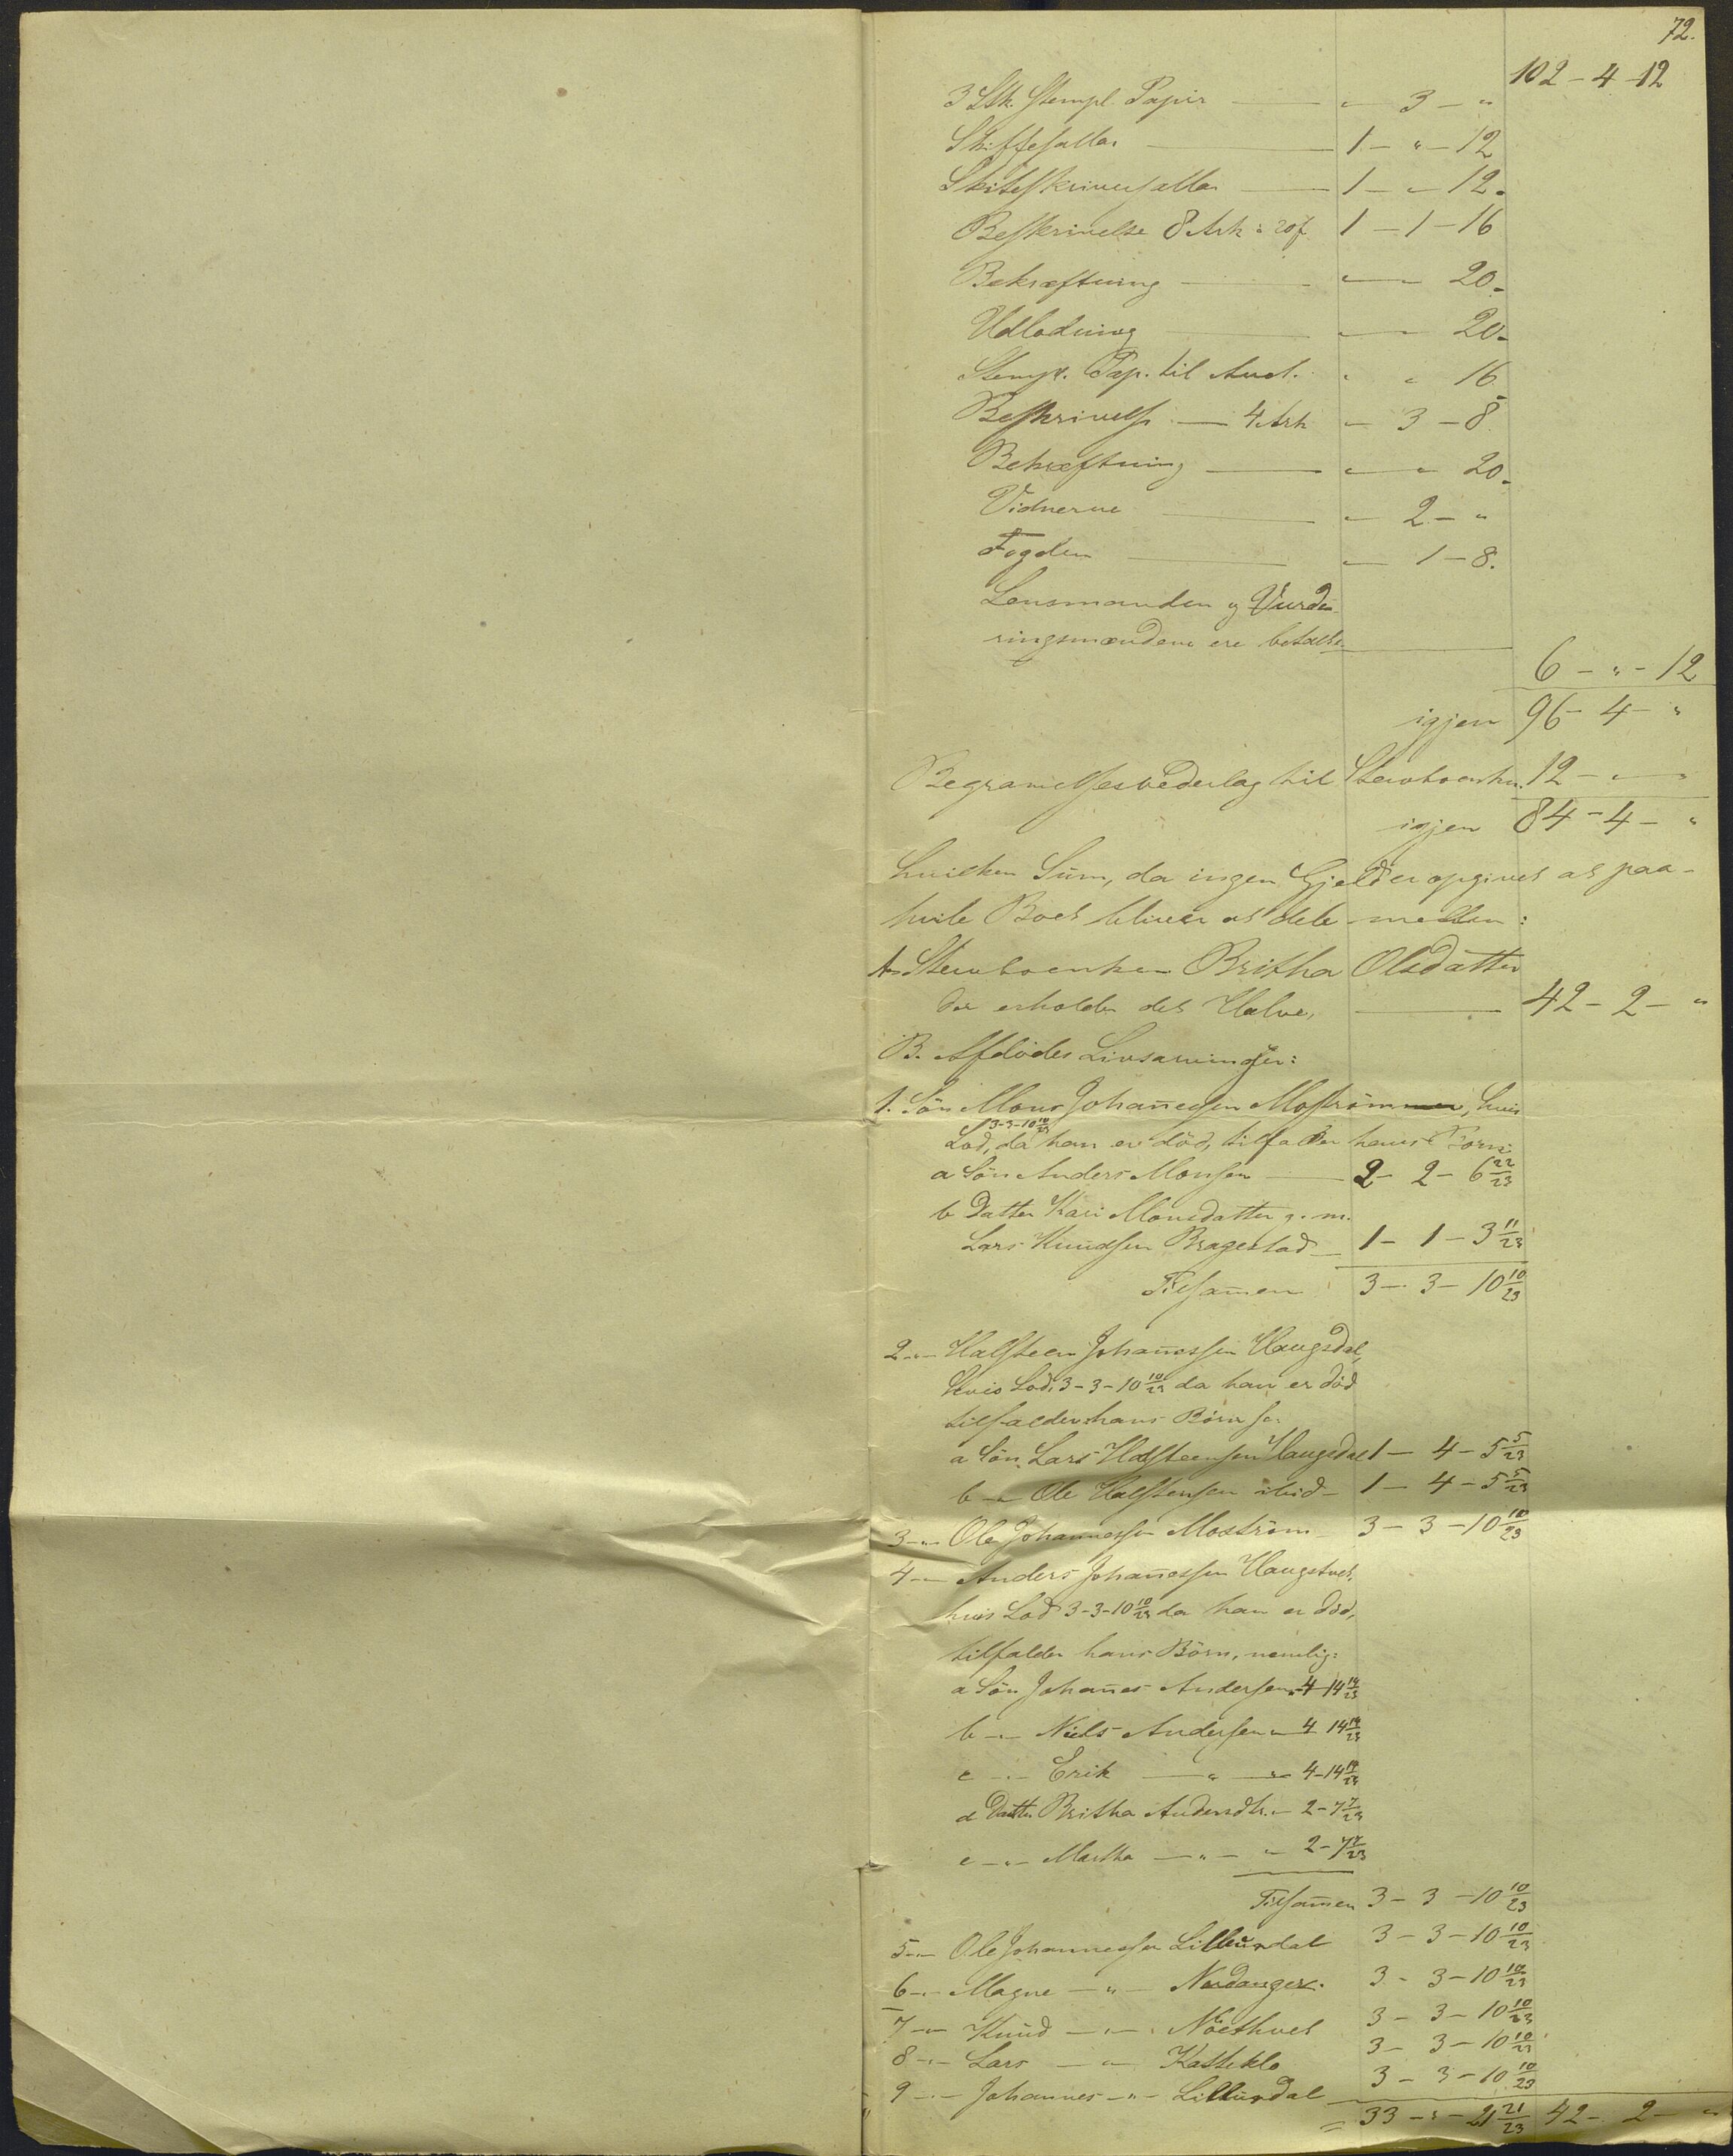 72.
102 – 4 – 12
3 Stk. Stempl. Papir — " 3 – "
Skiftesallar — 1 – " – 12
Skifteskriversallar — 1 – " – 12.
Beskrivelse 8 Ark à 20 f 1 – 1 – 16
Bekræftning — " — " 20.
Udlodning — " — " 20.
Stempl. Pap. til Auct. " " 16.
Beskrivelse — 4 Ark " 3 – 8.
Bekræftning — " — " 20.
Vidnerne — " 2 – "
Fogden — " 1 – 8.
Lensmanden og Vurde-
ringsmændene ere betalte. —
6 – " – 12
igjen 96 – 4 – "
Begravelsesvederlag til Stervboenken. 12 – " – "
igjen 84 – 4 – "
hvilken Sum, da ingen Gjeld er opgivet at paa-
hvile Boet bliver at dele mellem:
A. Stervboenken Britha Olsdatter
der erholder det Halve, — 42 – 2 – "
B. Afdødes Livsarvinger:
1. Søn Mons Johannesen Mostrøm, hvis
3-3-10 10/23
Lod, da han er død, tilfalder hans Børn:
a Søn Anders Monsen — 2 – 2 – 6 22/23
b Datter Kari Monsdatter g. m.
Lars Knudsen Bragestad — 1 – 1 – 3 11/23
Tilsamen 3 – 3 – 10 10/23
2 – " – Halsteen Johannessen Haugsdal,
hvis Lod, 3 – 3 – 10 10/23 da han er død
tilfalder hans Børn
a Søn Lars Halsteensen Haugsdal 1 – 4 – 5 5/23
b – " Ole Halstensen ibid – 1 – 4 – 5 5/23
3 – " – Ole Johannessen Mostrøm – 3 – 3 – 10 10/23
4 – " – Anders Johannessen Haugstvet,
hvis Lod 3 – 3 – 10 10/23 da han er død,
tilfalder hans Børn, nemlig:
a Søn Johannes Andersen " 4 14 14/23
b – " – Niels Andersen " – 4 14 14/23
c – " – Erik — " — " – 4 – 14 14/23
d Datter Britha Andersdtr. " – 2 – 7 7/23
e – " – Martha — " — " 2 – 7 7/23
Tilsamen 3 – 3 – 10 10/23
5 – " – Ole Johannessen Lillurdal 3 – 3 – 10 10/23
6 – " – Magne — " — Nordanger. 3 – 3 – 10 10/23
7 – " – Knud — " — Nöethvet 3 – 3 – 10 10/23
8 – " – Lars — " — Katteklo 3 – 3 – 10 10/23
9 – " – Johannes – " – Lillurdal 3 – 3 – 10 10/23
33 – " – 21 21/23 42 – 2 – "